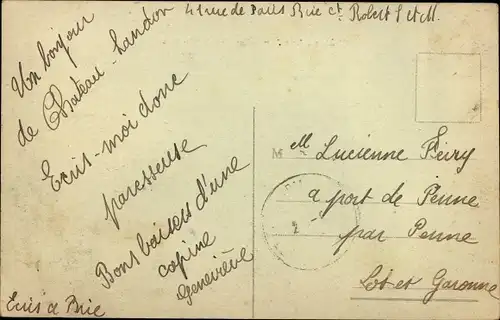 41 rue de Paris Brie Cte Robert S et M.
Un bonjour
de Chateau-Landon
Ecris-moi donc
paresseuse
Bons baisers d'une
copine
Geneviève
Ecris à Brie
Mell Lucienne Févry
a port de Penne
par Penne
Lot et Garonne